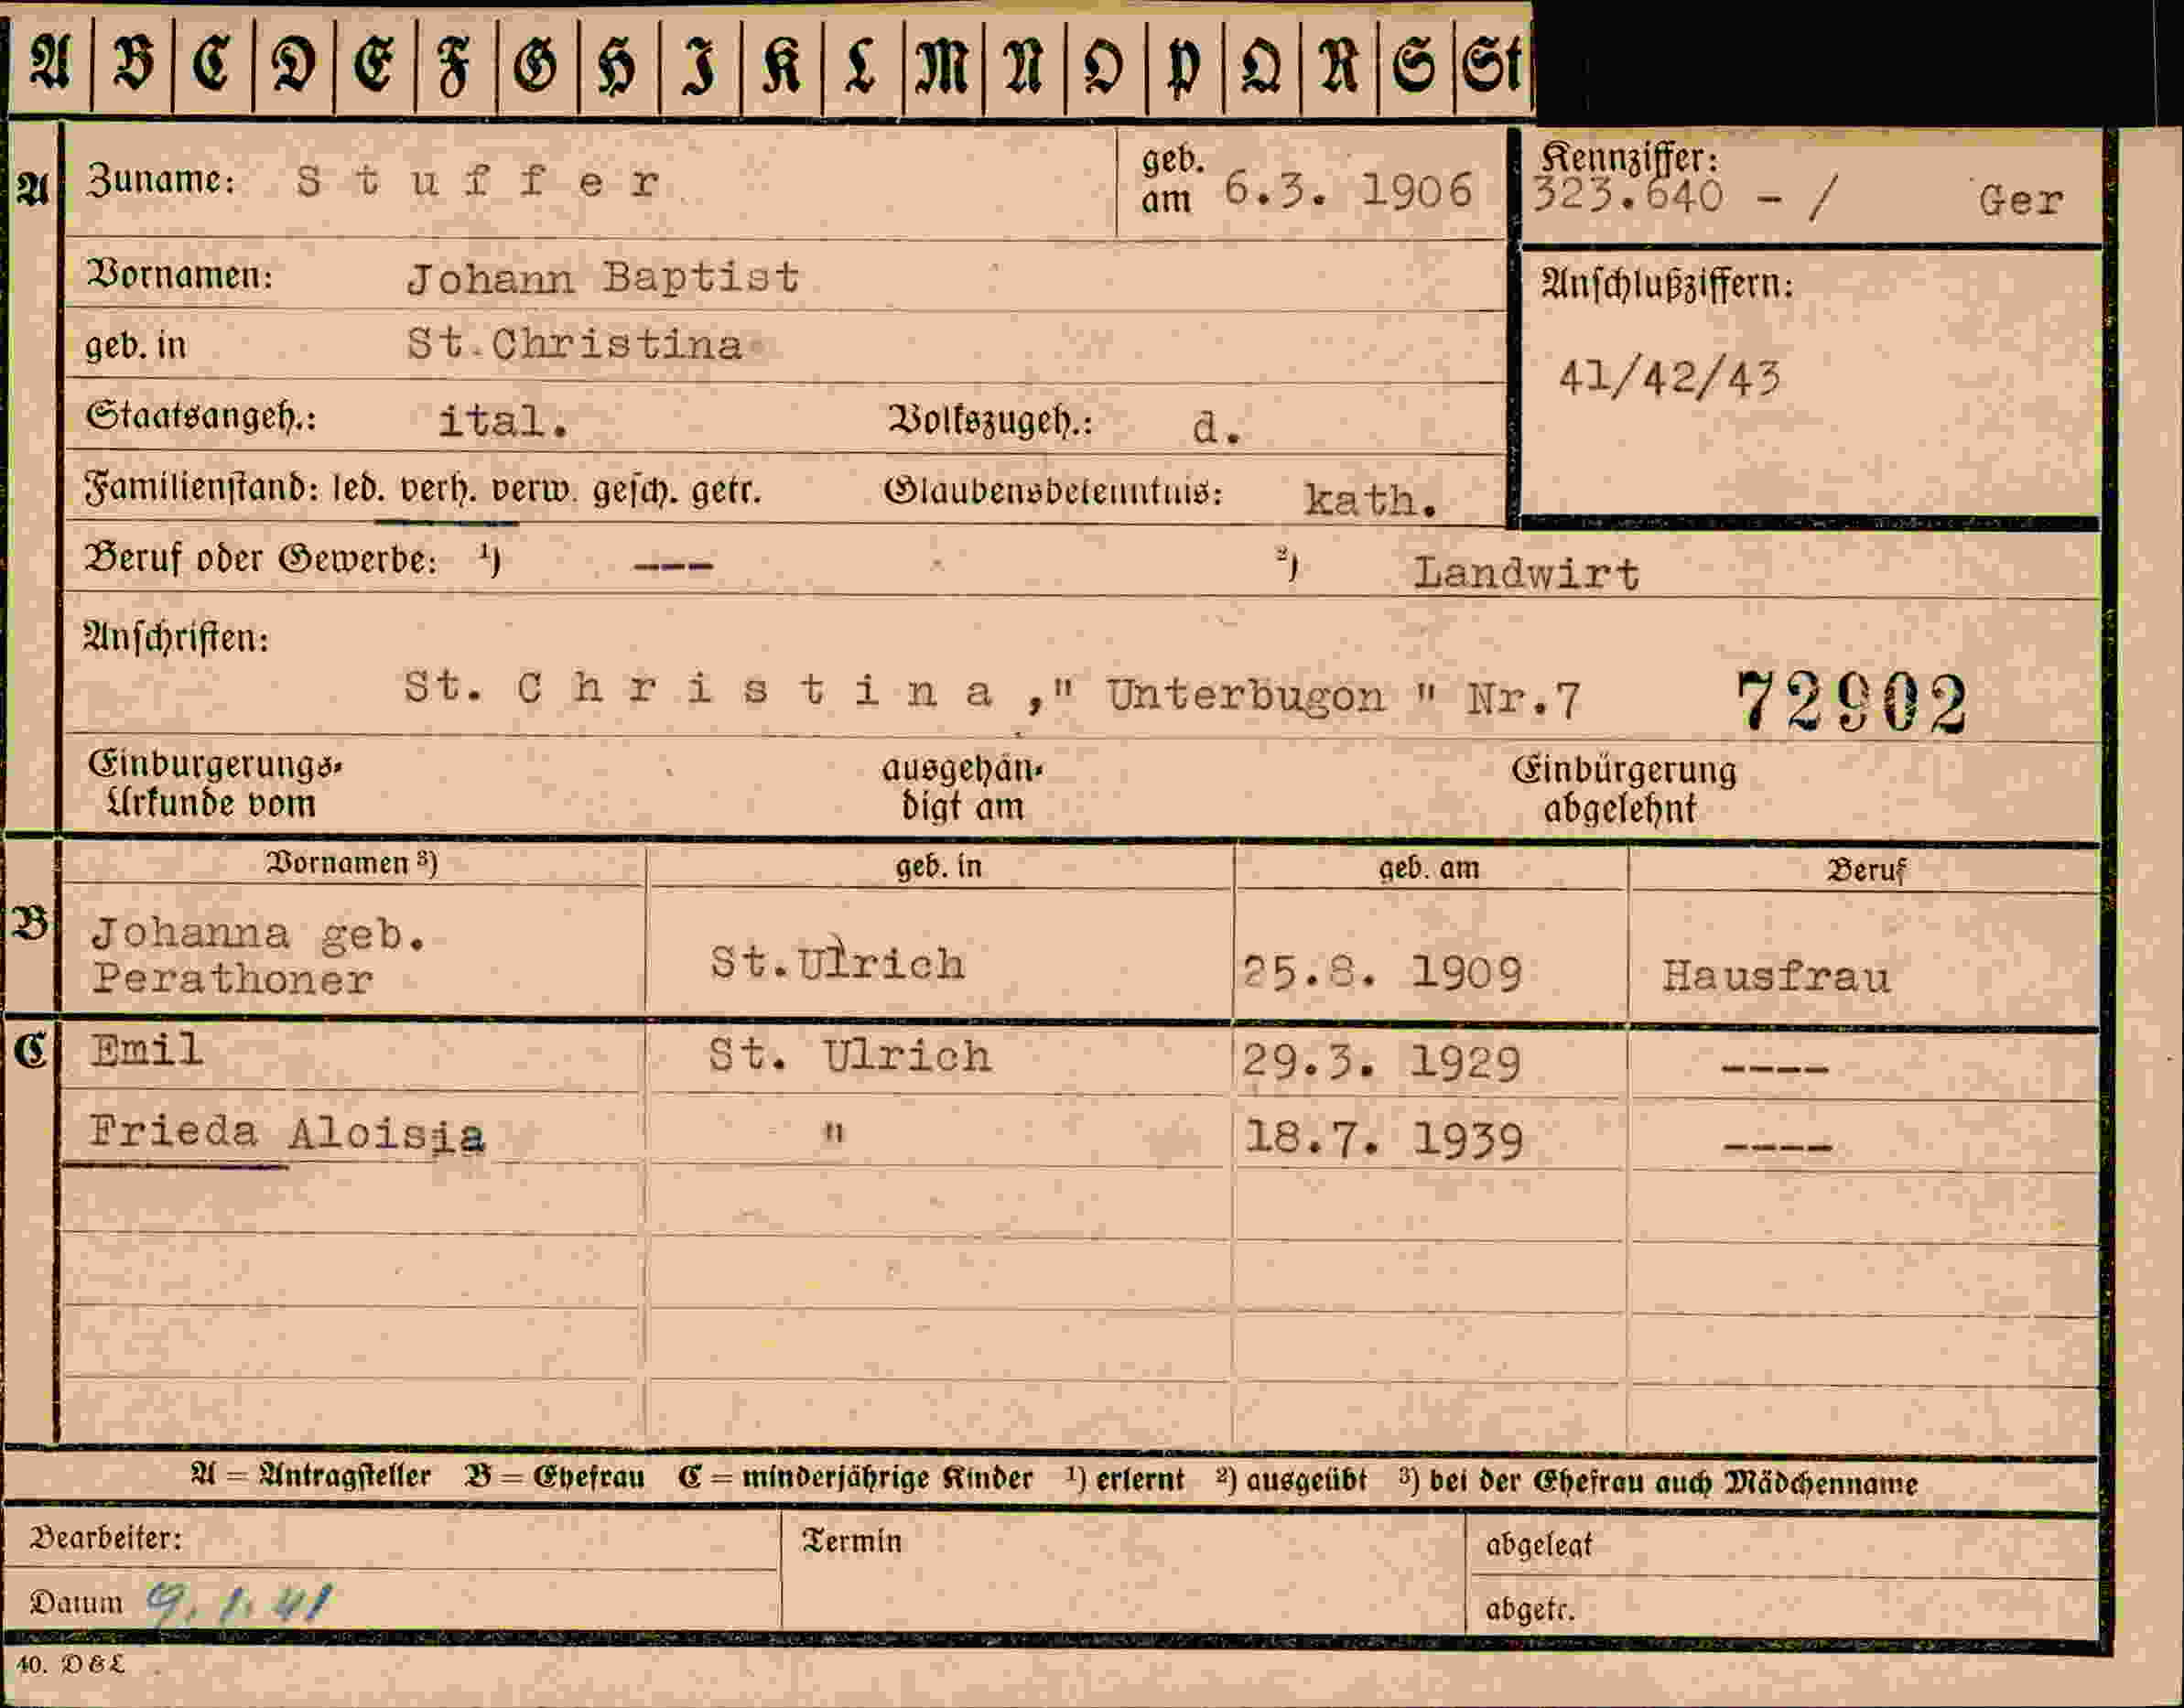 A B C D E F G H I K L M N O P Q R S St
A Zuname: Stuffer geb. am 6.3. 1906 Kennziffer: 323.640 - / Ger
Vornamen: Johann Baptist Anschlußziffern:
geb. in St.Christina 41/42/43
Staatsangeh.: ital. Volkszugeh.: d.
Familienstand: led. verh. verw. gesch. getr. Glaubensbekenntnis: kath.
Beruf oder Gewerbe: ¹) --- ²) Landwirt
Anschriften:
St. Christina ," Unterbugon " Nr.7 72902
Einbürgerungs- ausgehän- Einbürgerung
Urkunde vom digt am abgelehnt
Vornamen ³) geb. in geb. am Beruf
B Johanna geb.
Perathoner St.Ulrich 25.8. 1909 Hausfrau
C Emil St. Ulrich 29.3. 1929 ----
Frieda Aloisia " 18.7. 1939 ----
A = Antragsteller B = Ehefrau C = minderjährige Kinder ¹) erlernt ²) ausgeübt ³) bei der Ehefrau auch Mädchenname
Bearbeiter: Termin abgelegt
Datum 9.1.41 abgetr.
40. D & L